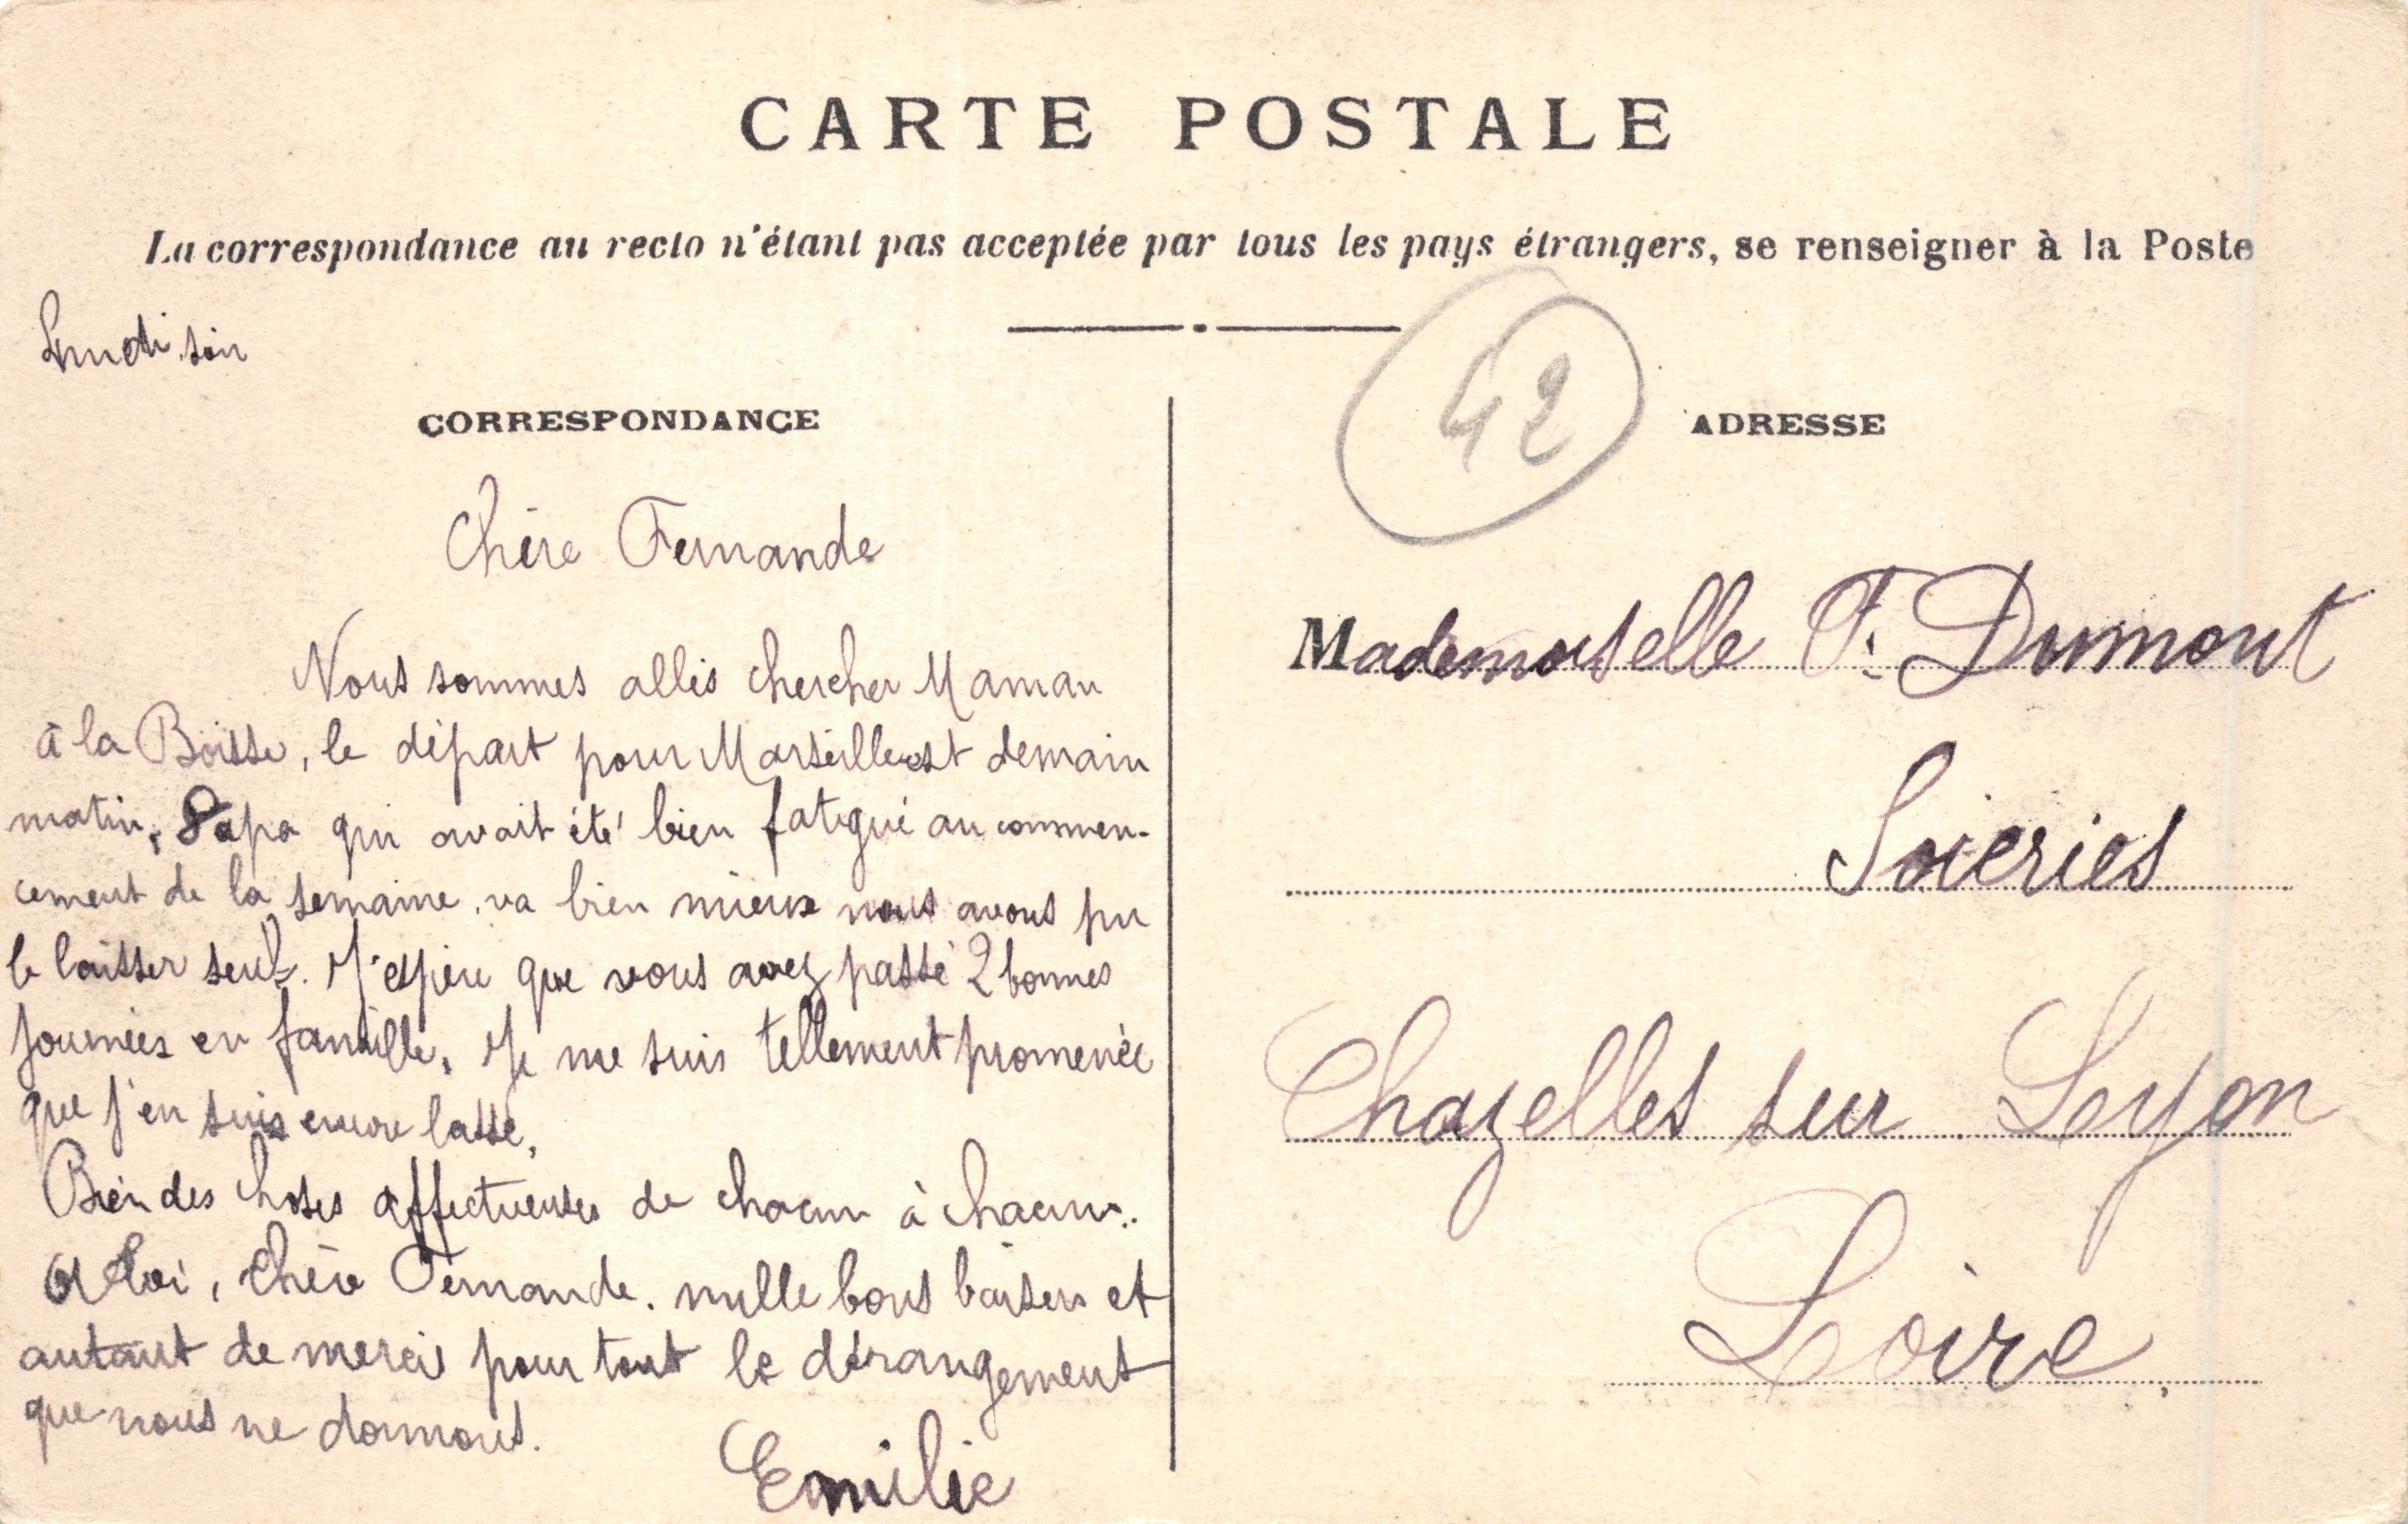 CARTE POSTALE
La correspondance au recto n'étant pas acceptée par tous les pays étrangers, se renseigner à la Poste
Lundi soir
42
CORRESPONDANCE
Chère Fernande
Nous sommes allés chercher Maman
à la Boisse, le départ pour Marseille est demain
matin. Papa qui avait été bien fatigué au commen-
cement de la semaine, va bien mieux nous avons pu
le laisser seul. J'espère que vous avez passé 2 bonnes
journées en famille. Je me suis tellement promenée
que j'en suis encore lasse.
Bien des choses affectueuses de chacun à chacun..
A toi, chère Fernande. mille bons baisers et
autant de mercis pour tout le dérangement
que nous ne donnons.
Emilie
ADRESSE
Mademoiselle F. Dumont
Soieries
Chazelles sur Lyon
Loire.